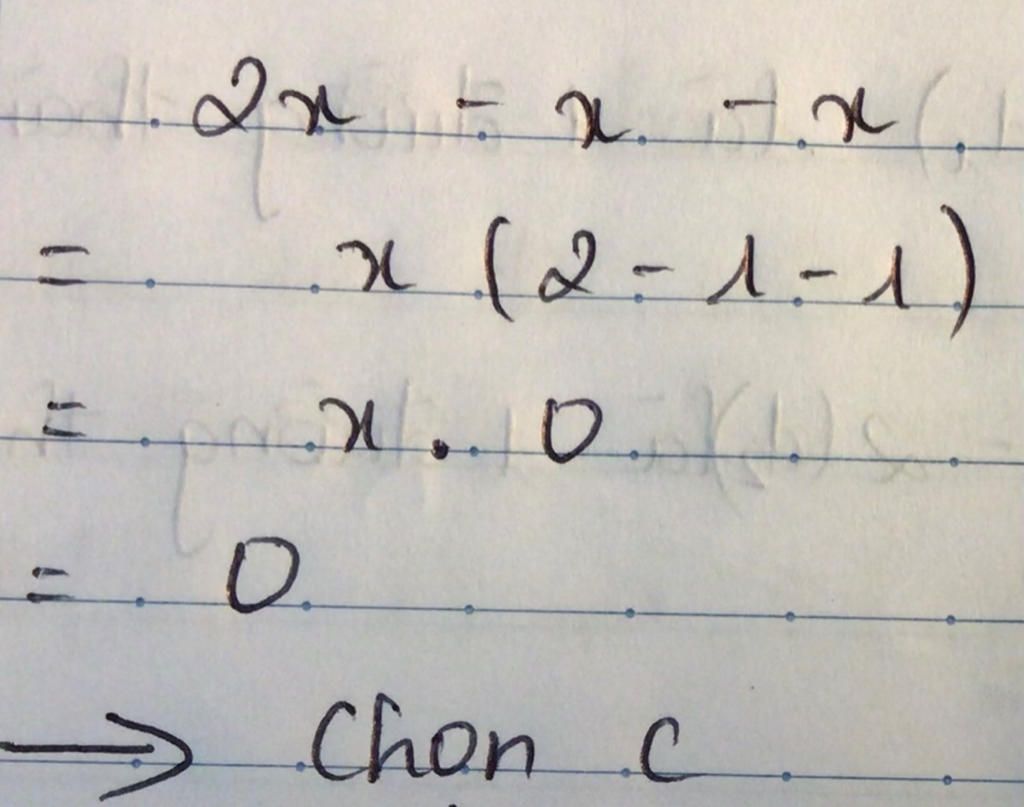 2x - x - x
= x (2 - 1 - 1)
= x . 0
= 0
⟹ Chọn C